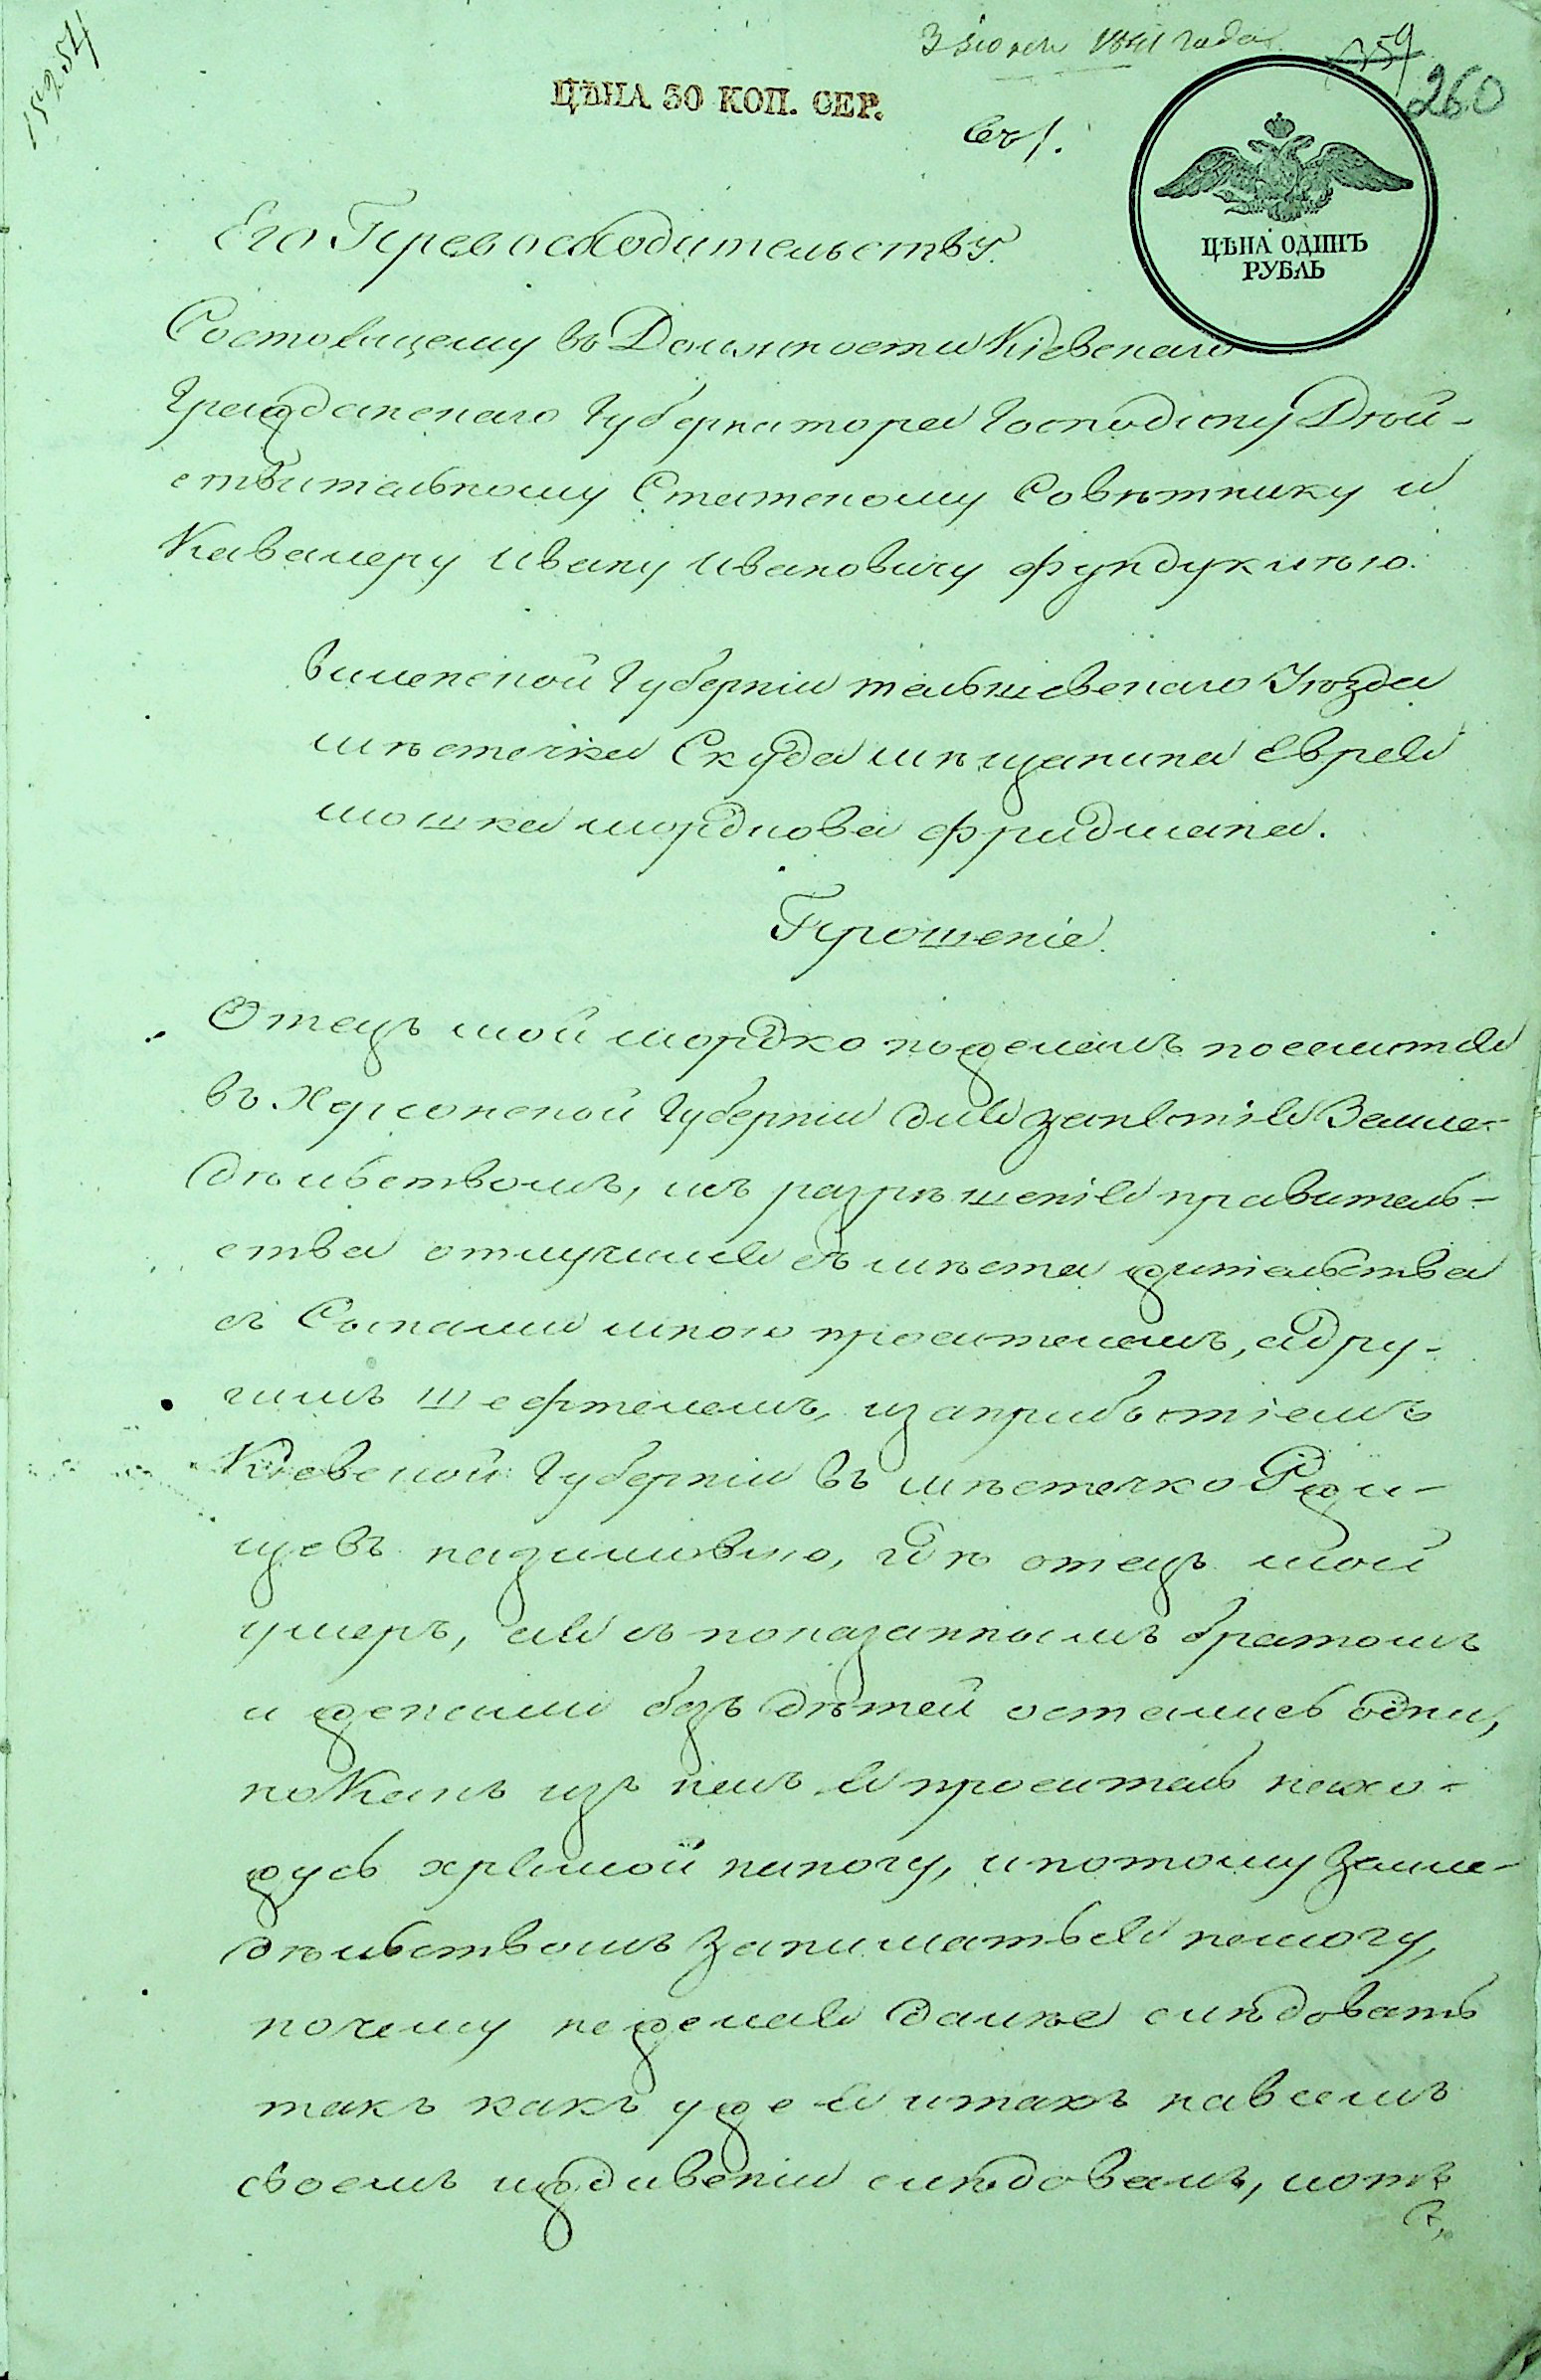 15254
3 Июля 1841 года.
259
260
ЦѢНА 30 КОП. СЕР.
ЦѢНА ОДИНЪ
РУБЛЬ
Его Превосходительству
Состоящему въ Должности Кіевскаго
Гражданскаго Губернатора Господину Дѣй-
ствительному Статскому Совѣтнику и
Кавалеру Ивану Ивановичу Фундуклѣю.
Виленской Губерніи тельшевскаго Уѣзда
мѣстечка Скуда мѣщанина Еврея
мошка мордкова фридмана.
Прошеніе.
Отецъ мой мордко пожелалъ поселится
въ Херсонской Губерніи для занятія Земле-
дѣльствомъ, съ разрѣшенія правитель-
ства отлучился съ мѣста жительства
съ Сынами мною просителемъ, и дру-
гимъ шефтелемъ, изаприбытіемъ
Кіевской Губерніи въ мѣстечко Ржи-
щевъ назимовлю, гдѣ отецъ мой
умеръ, ая съ показаннымъ братомъ
и женами безъ дѣтей остались одни,
покакъ изъ нихъ я проситель нахо-
жусь хрямой наногу, ипотому Земле-
дѣльствомъ Заниматься немогу,
почему нежелая далѣе слѣдовать
такъ какъ уже я итакъ навсемъ
своемъ иждивеніи слѣдовалъ, иотъ